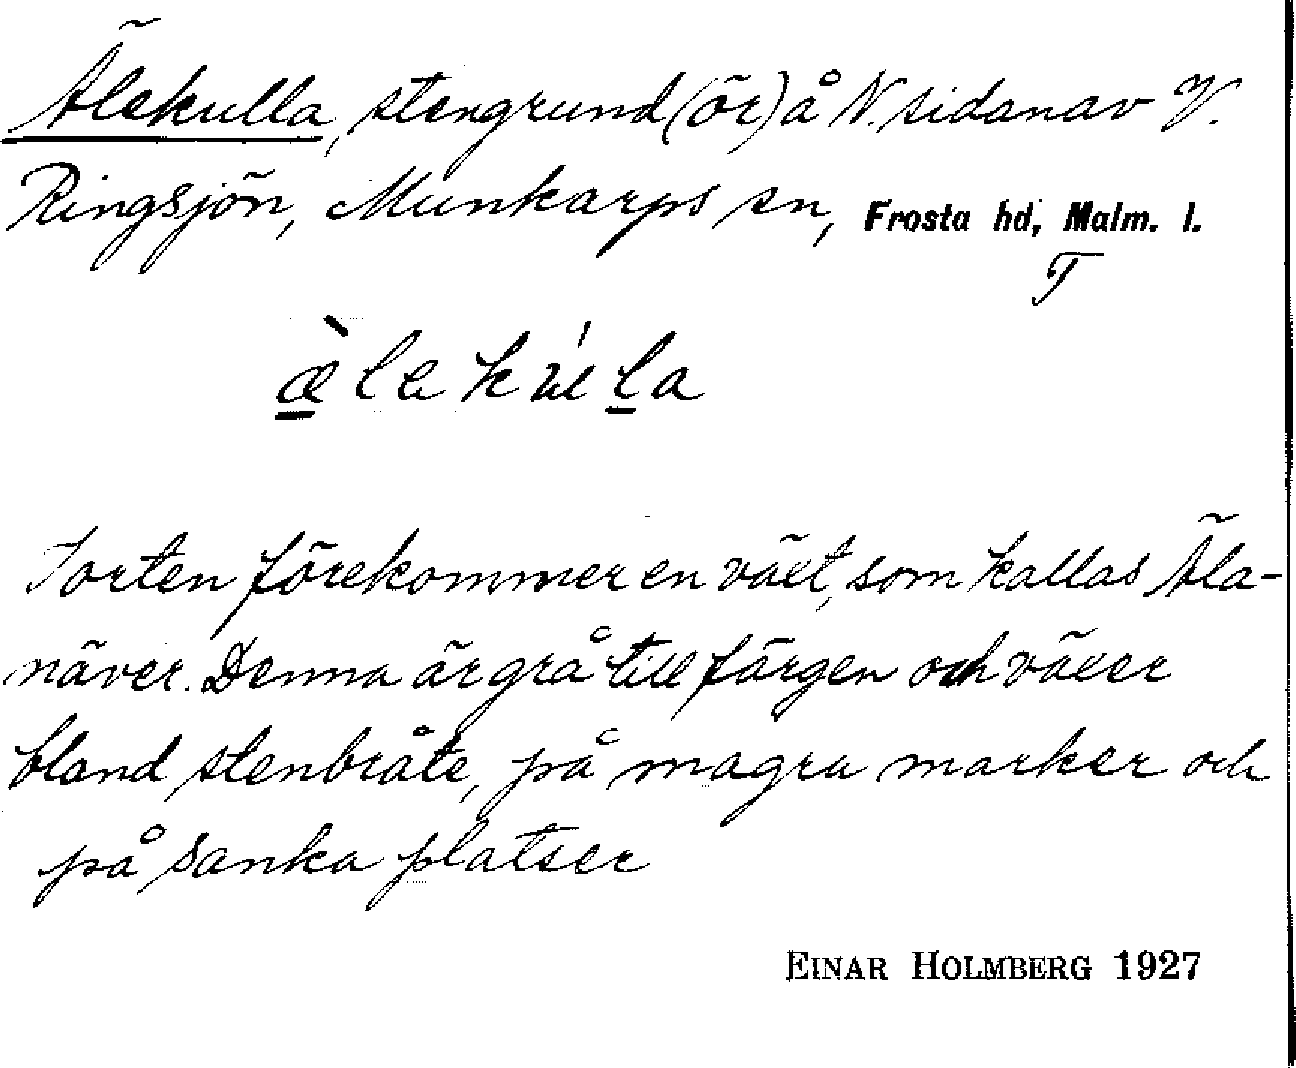 Älekulla, stengrund (ör) å N. sidan av V.
Ringsjön, Munkarps sn, Frosta hd, Malm. l.
T
æ̀lekúla
I orten förekommer en växt, som kallas Äla-
näver. Denna är grå till färgen och växer
bland stenbråte, på magra marker och
på sanka platser
EINAR HOLMBERG 1927